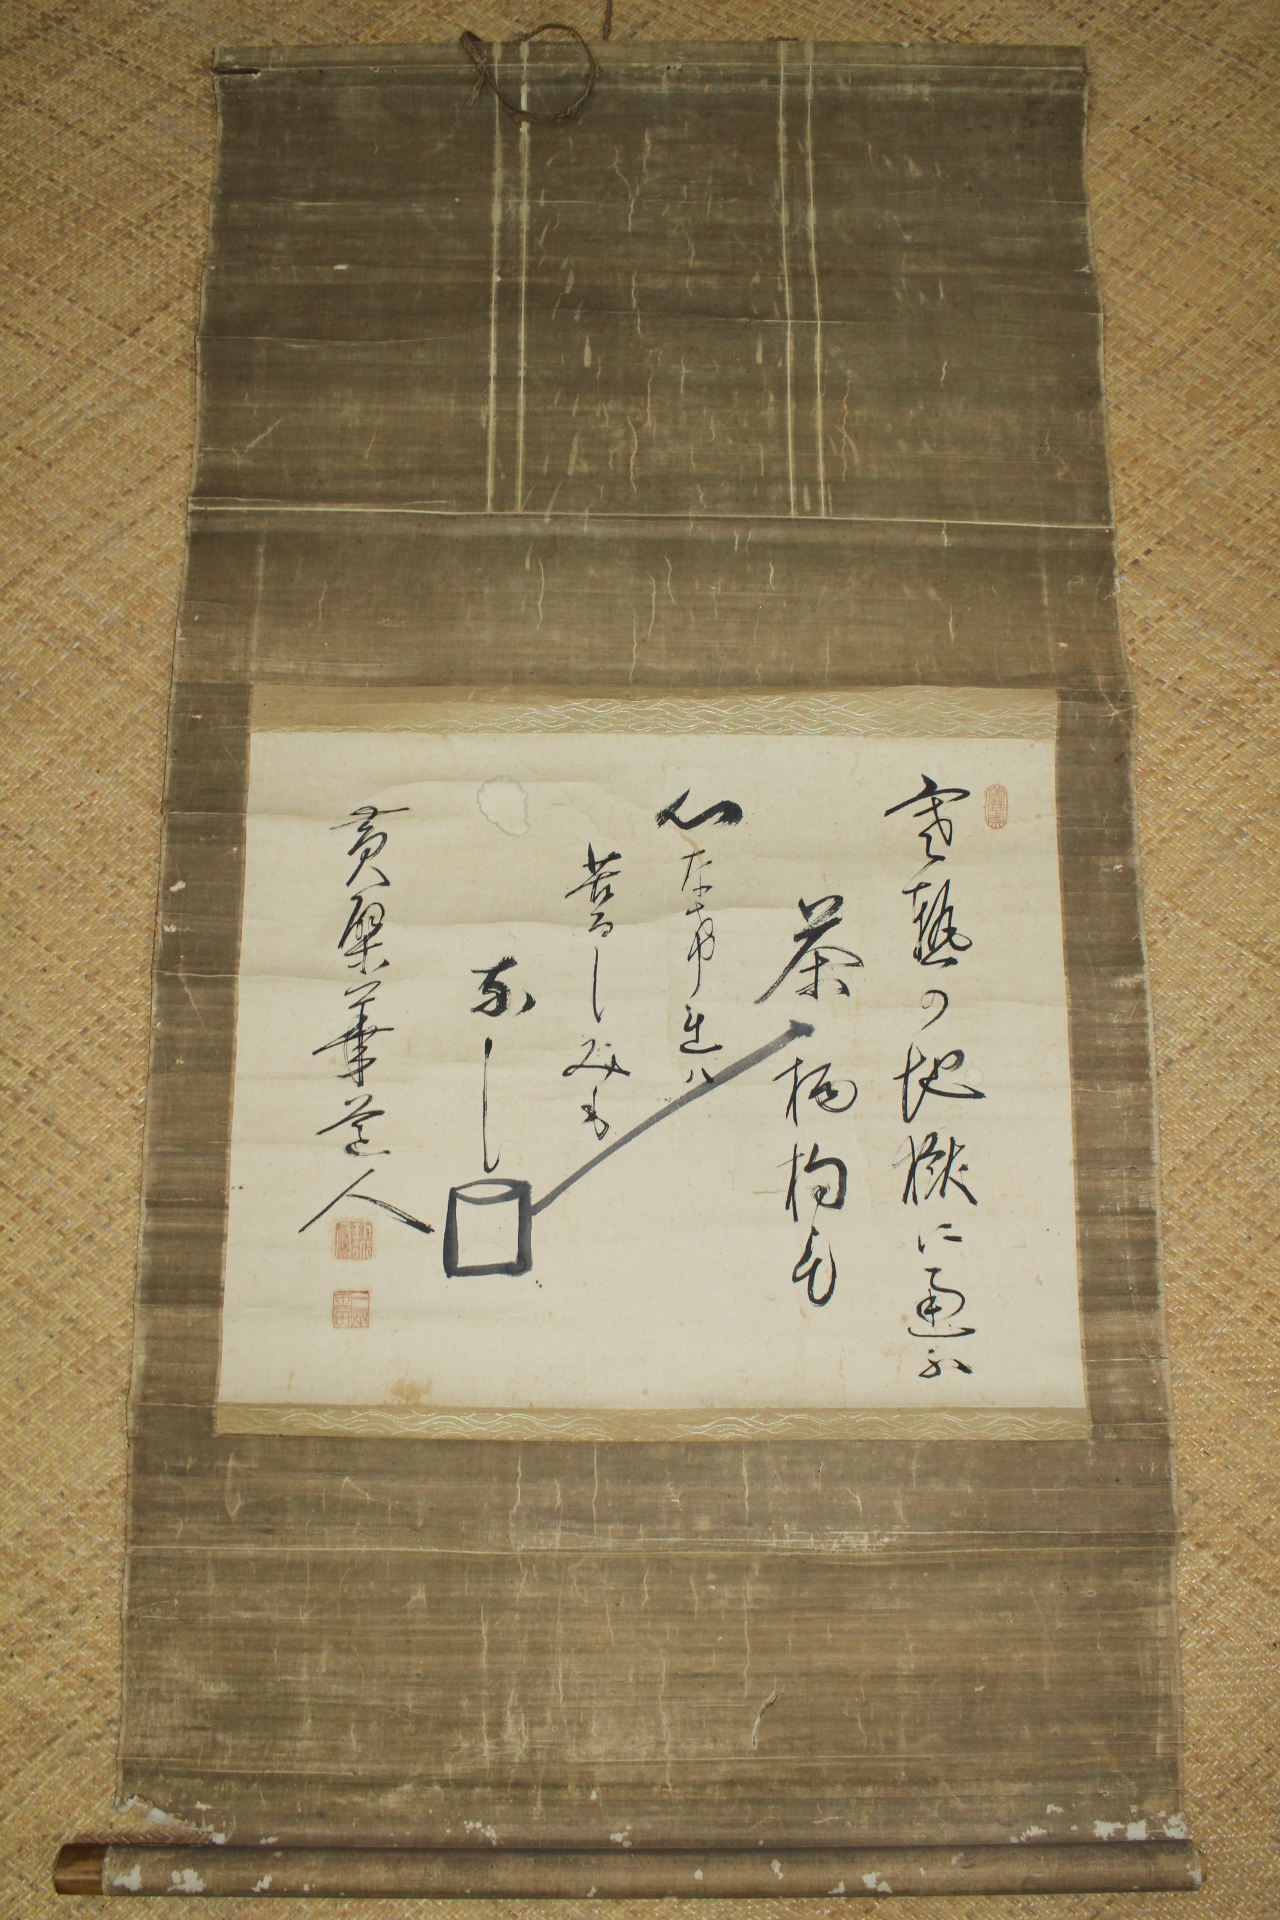 寒熱の地獄に通ふ
茶柄杓も
心なければ
苦るしみも
なし
黄檗
道人